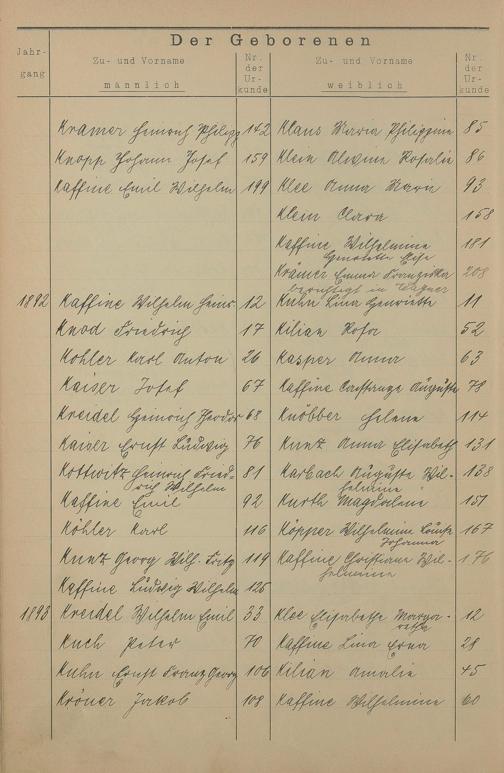 Der Geborenen
Jahrgang
Zu- und Vorname
männlich
Nr. der Urkunde
Zu- und Vorname
weiblich
Nr. der Urkunde
Kramer Heinrich Philipp 142 Klaus Maria Philippine 85
Knopp Johann Josef 159 Klein Alwine Rosalie 86
Kaffine Emil Wilhelm 199 Klee Anna Maria 93
Klein Clara 158
Kaffine Wilhelmine 181
Henriette Elise
Krämer Emma Franziska 208
berichtigt in Wagner
1892 Kaffine Wilhelm Heinr. 12 Kuhn Lina Henriette 11
Knod Friedrich 17 Kilian Rosa 52
Kohler Karl Anton 26 Kasper Anna 63
Kaiser Josef 67 Kaffine Auguste 78
Kreidel Heinrich Theodor 68 Knöbber Helene 114
Kaiser Ernst Ludwig 76 Kunz Anna Elisabeth 131
Kottwitz Heinrich Fried- 81 Karbach Auguste Wil- 138
rich Wilhelm helmine
Kaffine Emil 92 Kurth Magdalene 151
Köhler Karl 116 Köpper Wilhelmine Louise 167
Johanna
Kunz Georg Wilh. Fritz 119 Kaffine Christiane Wil- 176
helmine
Kaffine Ludwig Wilhelm 125
1893 Kreidel Wilhelm Emil 33 Klee Elisabethe Marga- 12
rethe
Kuch Peter 70 Kaffine Lina Erna 28
Kuhn Ernst Franz Georg 106 Kilian Amalie 45
Kröner Jakob 108 Kaffine Wilhelmine 60